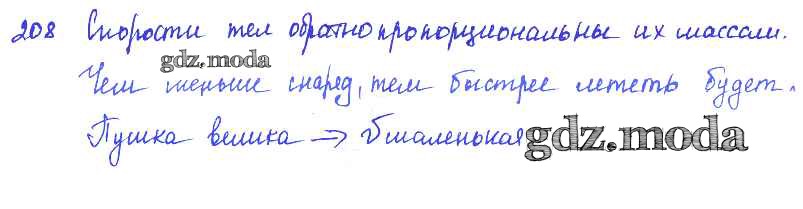 208 Скорости тел обратно пропорциональны их массам.
gdz.moda
Чем меньше снаряд, тем быстрее лететь будет.
Пушка велика → υ маленькая
gdz.moda